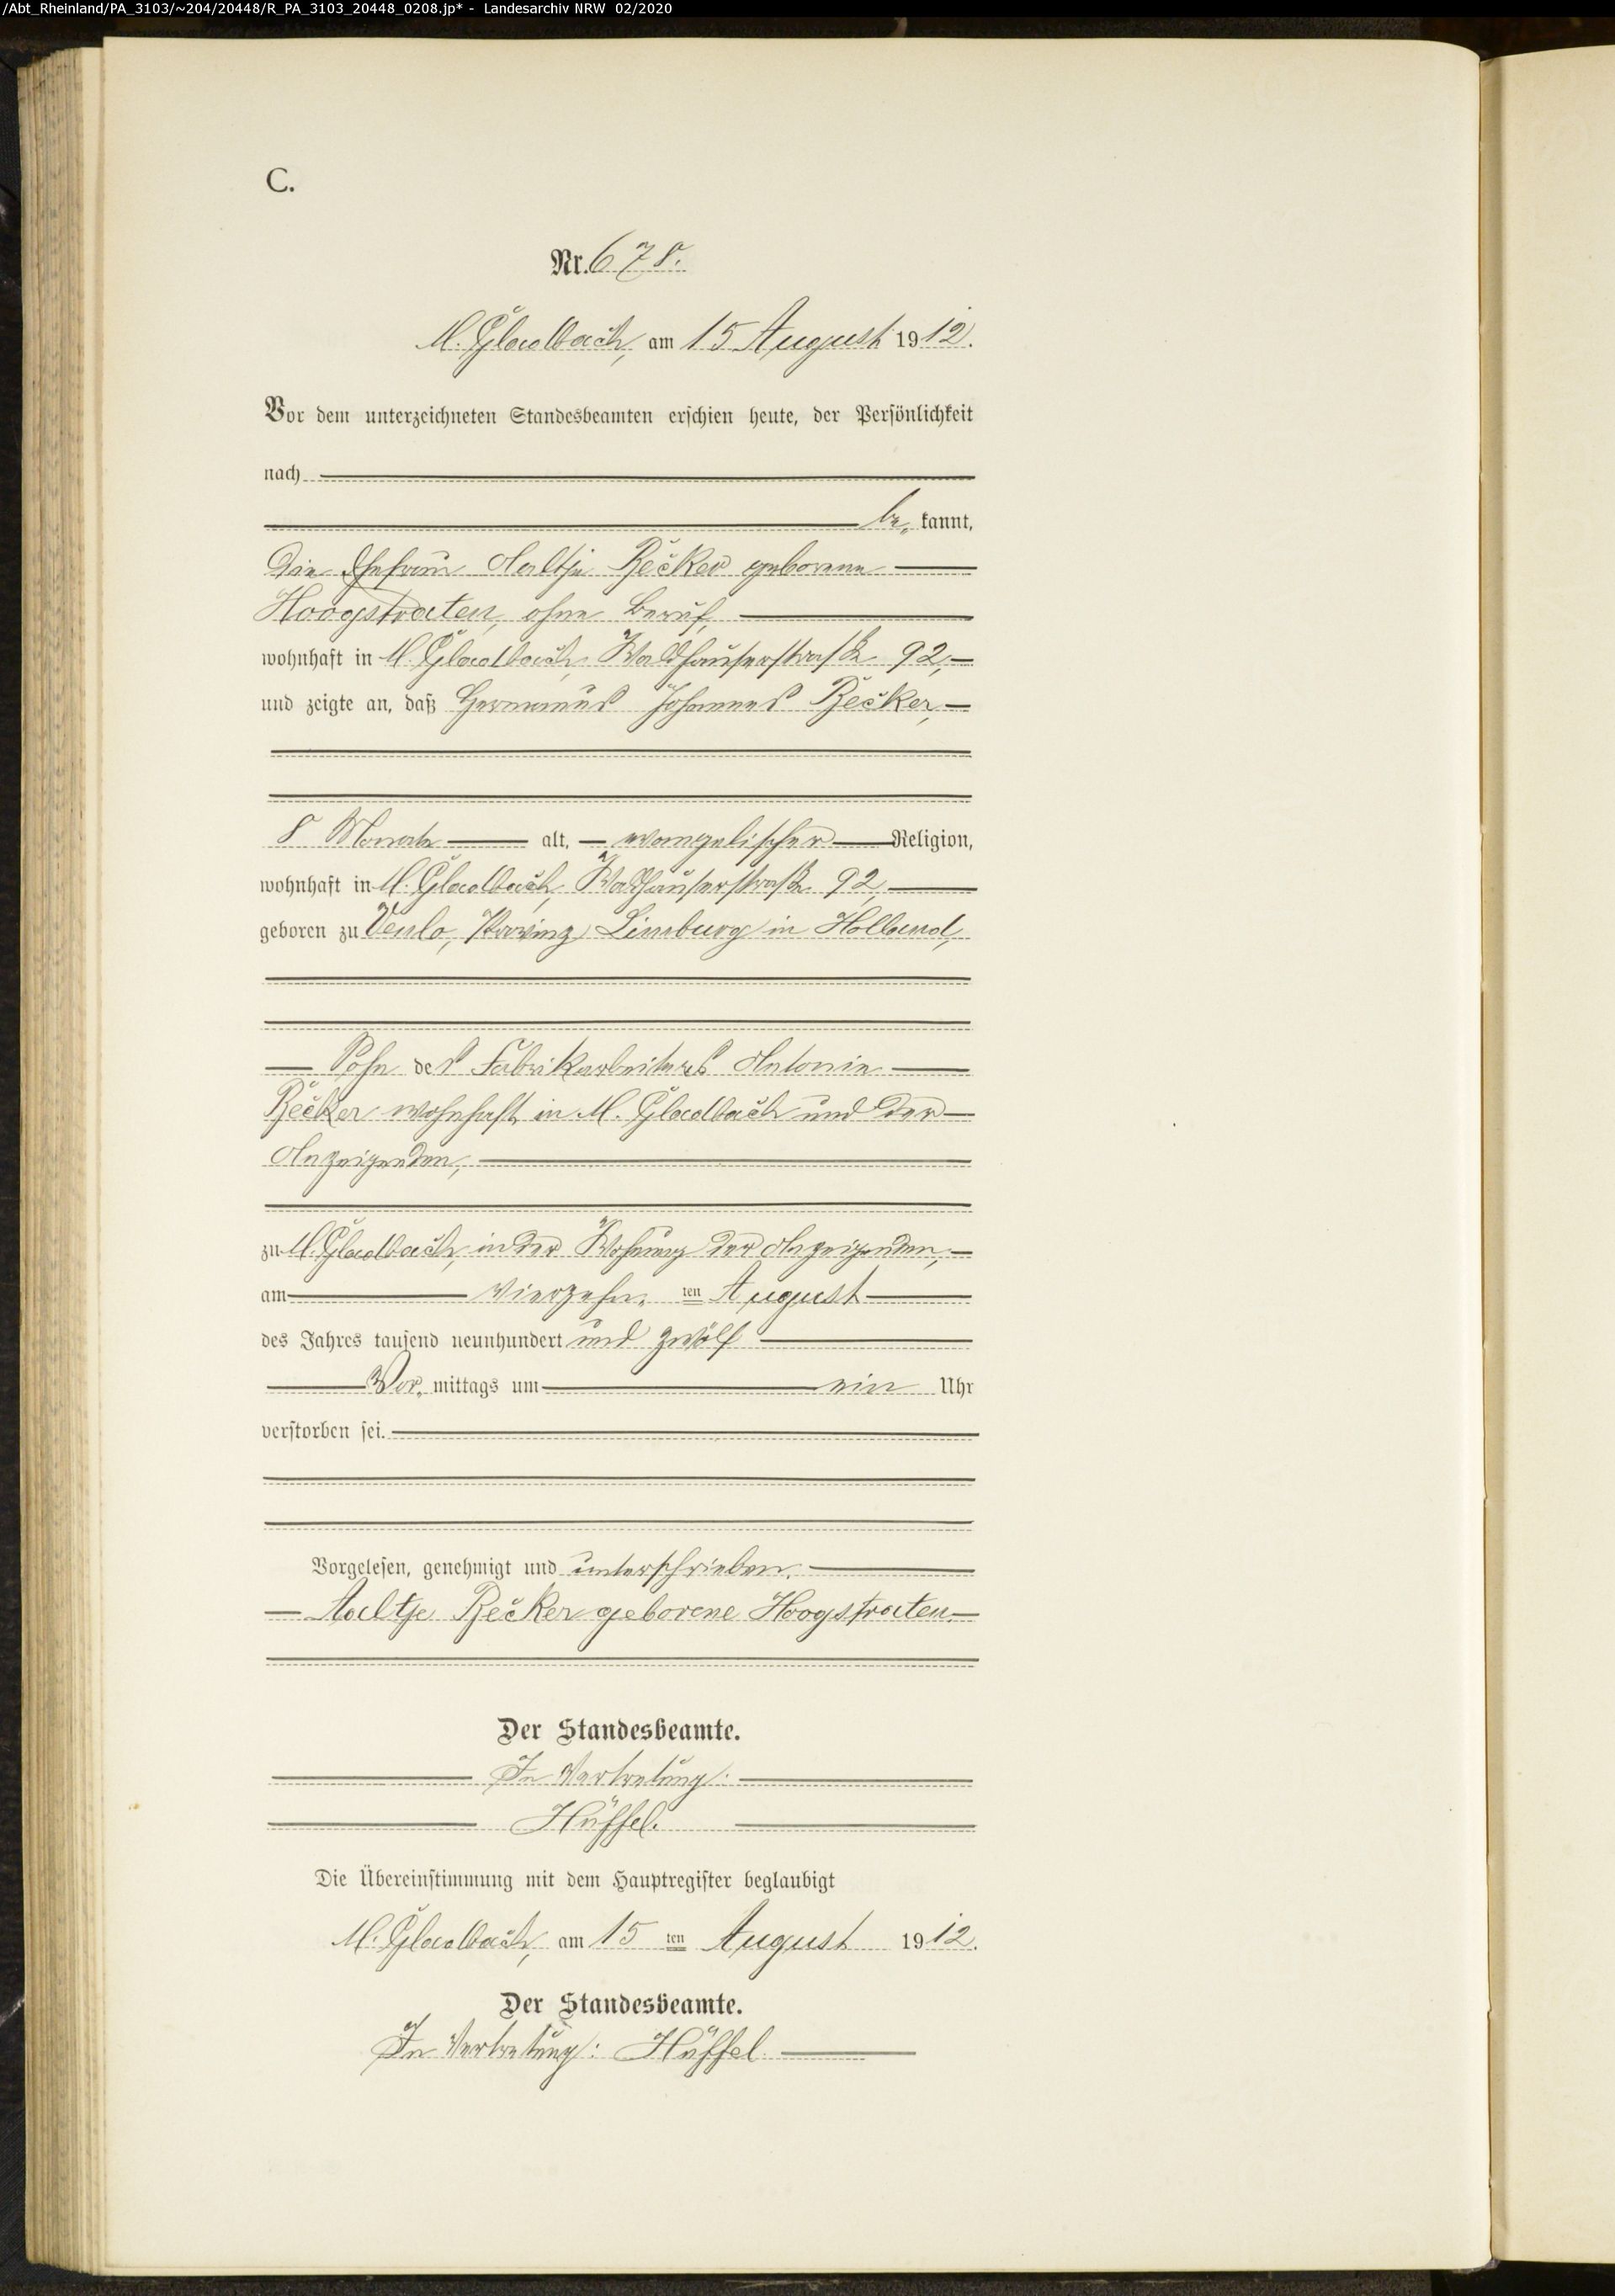 /Abt_Rheinland/PA_3103/~204/20448/R_PA_3103_20448_0208.jp* - Landesarchiv NRW 02/2020
C.
Nr. 678.
M. Gladbach, am 15 August 1912.
Vor dem unterzeichneten Standesbeamten erschien heute, der Persönlichkeit
nach
be kannt,
die Ehefrau Aaltje Becker geborene
Hoogstraten, ohne Beruf,
wohnhaft in M. Gladbach, Waldhauserstraße 92,
und zeigte an, daß Hermanus Johannes Becker,
8 Monate alt, evangelischer Religion,
wohnhaft in M. Gladbach, Waldhauserstraße 92,
geboren zu Venlo, Provinz Limburg in Holland,
Sohn des Fabrikarbeiters Antonie
Becker wohnhaft in M. Gladbach und der
Anzeigenden,
zu M. Gladbach, in der Wohnung der Anzeigenden,
am vierzehn ten August
des Jahres tausend neunhundert und zwölf
Vor mittags um ein Uhr
verstorben sei.
Vorgelesen, genehmigt und unterschrieben.
Aaltje Becker geborene Hoogstraten
Der Standesbeamte.
In Vertretung:
Hüffel.
Die Übereinstimmung mit dem Hauptregister beglaubigt
M. Gladbach, am 15 ten August 1912.
Der Standesbeamte.
In Vertretung: Hüffel